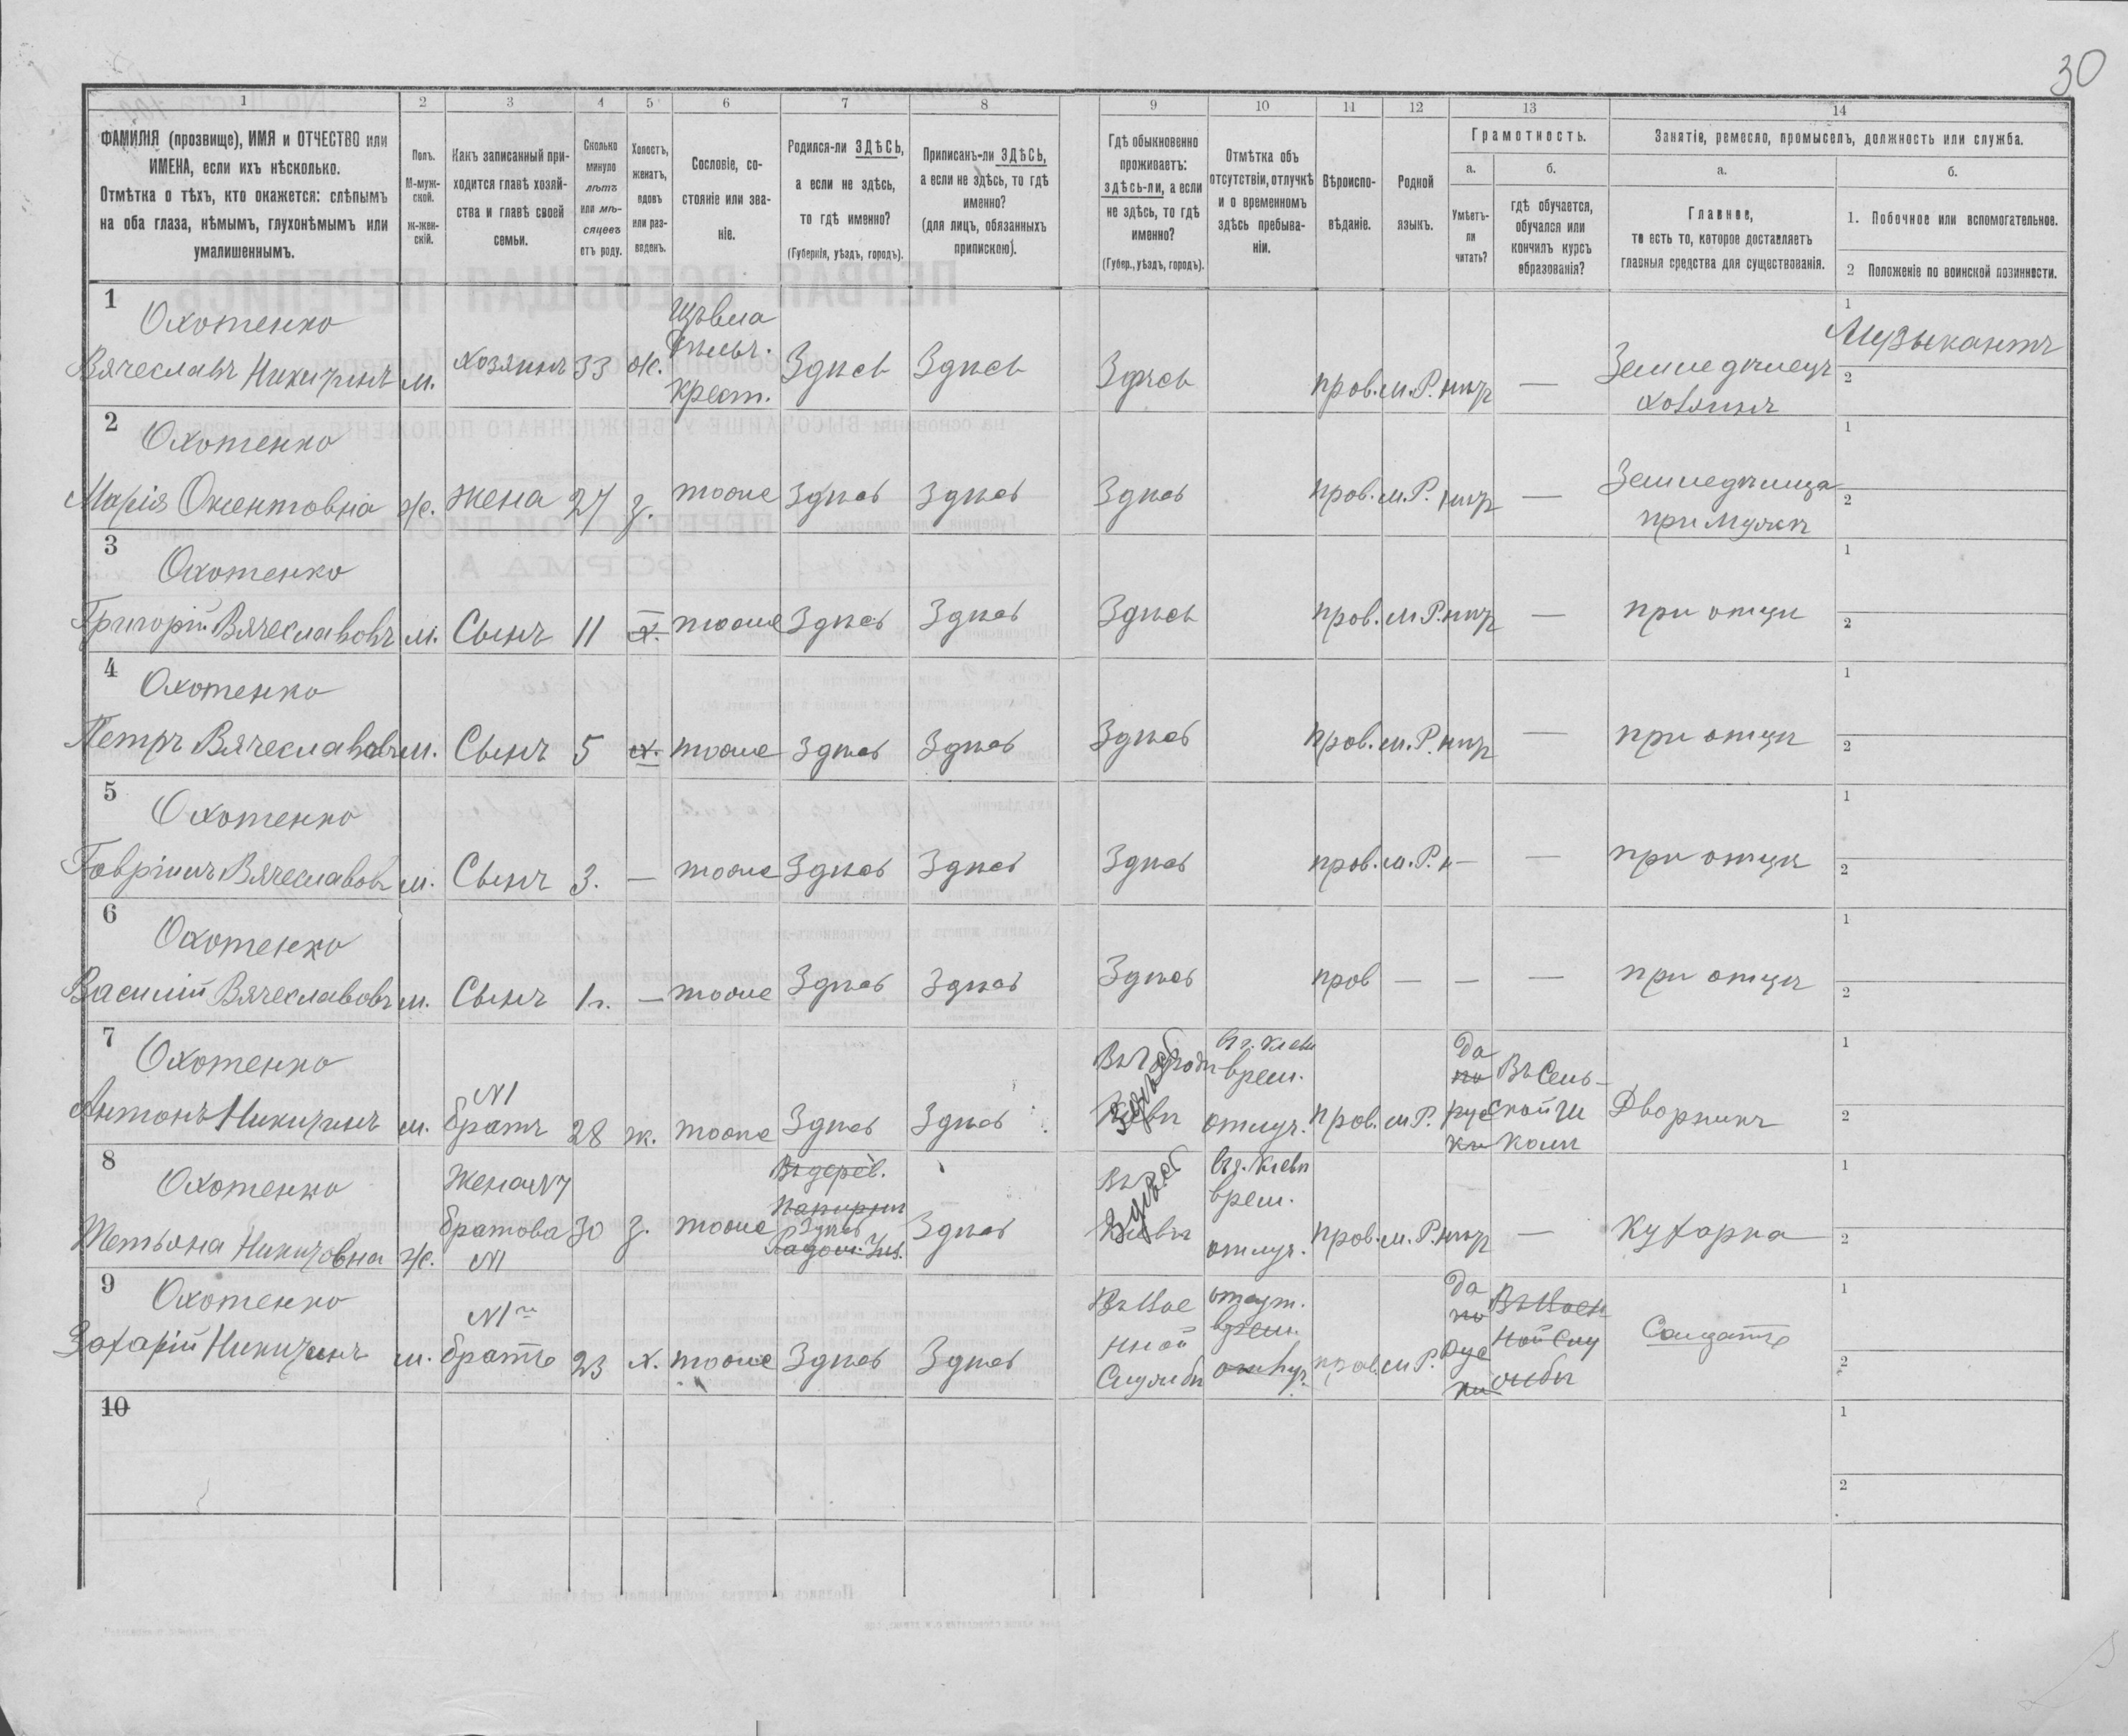 30
1 2 3 4 5 6 7 8 9 10 11 12 13 14
ФАМИЛІЯ (прозвище), ИМЯ и ОТЧЕСТВО или
ИМЕНА, если ихъ нѣсколько.
Отмѣтка о тѣхъ, кто окажется: слѣпымъ
на оба глаза, нѣмымъ, глухонѣмымъ или
умалишеннымъ.
Полъ.
М-муж-
ской.
Ж-жен-
скій.
Какъ записанный при-
ходится главѣ хозяй-
ства и главѣ своей
семьи.
Сколько
минуло
лѣтъ
или мѣ-
сяцевъ
отъ роду.
Холостъ,
женатъ,
вдовъ
или раз-
веденъ.
Сословіе, со-
стояніе или зва-
ніе.
Родился-ли ЗДѢСЬ,
а если не здѣсь,
то гдѣ именно?
(Губернія, уѣздъ, городъ).
Приписанъ-ли ЗДѢСЬ,
а если не здѣсь, то гдѣ
именно?
(для лицъ, обязанныхъ
припискою).
Гдѣ обыкновенно
проживаетъ:
здѣсь-ли, а если
не здѣсь, то гдѣ
именно?
(Губер., уѣздъ, городъ).
Отмѣтка объ
отсутствіи, отлучкѣ
и о временномъ
здѣсь пребыва-
ніи.
Вѣроиспо-
вѣданіе.
Родной
языкъ.
Грамотность.
а.
Умѣетъ-
ли
читать?
б.
гдѣ обучается,
обучался или
кончилъ курсъ
образованія?
Занятіе, ремесло, промыселъ, должность или служба.
а.
Главное,
то есть то, которое доставляетъ
главныя средства для существованія.
б.
1. Побочное или вспомогательное.
2 Положеніе по воинской повинности.
1
Охотенко
Вячеславъ Никитинъ м. хозяинъ 33 ж.
крест.
Здѣсь Здѣсь Здѣсь пров. м. Р. нѣтъ —
Земледѣлецъ
хозяинъ
1
Музыкантъ
2
2
Охотенко
Марія Ж. жена 27 з. тоже Здѣсь Здѣсь Здѣсь пров. м. Р. нѣтъ —
Земледѣлица
при мужѣ
1
2
3
Охотенко
Григорій Вячеславовъ м. Сынъ 11 х. тоже Здѣсь Здѣсь Здѣсь пров. м. Р. нѣтъ — при отцѣ
1
2
4
Охотенко
Петръ Вячеславовъ м. Сынъ 5 х. тоже Здѣсь Здѣсь Здѣсь пров. м. Р. нѣтъ — при отцѣ
1
2
5
Охотенко
Гавріилъ Вячеславовъ м. Сынъ 3. — тоже Здѣсь Здѣсь Здѣсь пров. м. Р. н — — при отцѣ
1
2
6
Охотенко
Василій Вячеславовъ м. Сынъ 1 г. — тоже Здѣсь Здѣсь Здѣсь пров — — — при отцѣ
1
2
7
Охотенко
Антонъ Никитинъ м.
N1
братъ
28 ж. тоже Здѣсь Здѣсь
Въ городѣ
Кіевѣ
Здѣсь
въ г. Кіевѣ
врем.
отлуч.
пров. м. Р.
Да
по
рус
ки
Въ Сель-
ской Ш
колѣ
Дворникъ
1
2
8
Охотенко
Тетьяна Никитовна Ж.
Жена N7
братова
N1
30 з. тоже
Въ дерев.
Здѣсь
Здѣсь
Въ
Кіевѣ
Здѣсь
въ г. Кіевѣ
врем.
отлуч.
пров. м. Р. нѣтъ — Кухарка
1
2
9
Охотенко
Захарій Никитинъ м.
N1
братъ
23 х. тоже Здѣсь Здѣсь
Въ Вое
нной
Службѣ
отсут.
врем.
пров. м. Р.
Да
по
Рус
ки
Въ Воен
ной Слу
жбѣ
Солдатъ
1
2
10
1
2